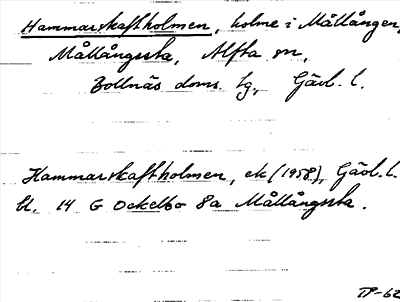 Hammarskaftholmen, holme i Mållången,
Mållångssta, Alfta sn,
Bollnäs doms. tg, Gävl. l.
Hammarskaftholmen, ek (1958), Gävl. l.
bl. 14 G Ockelbo 8a Mållångssta.
TP-62